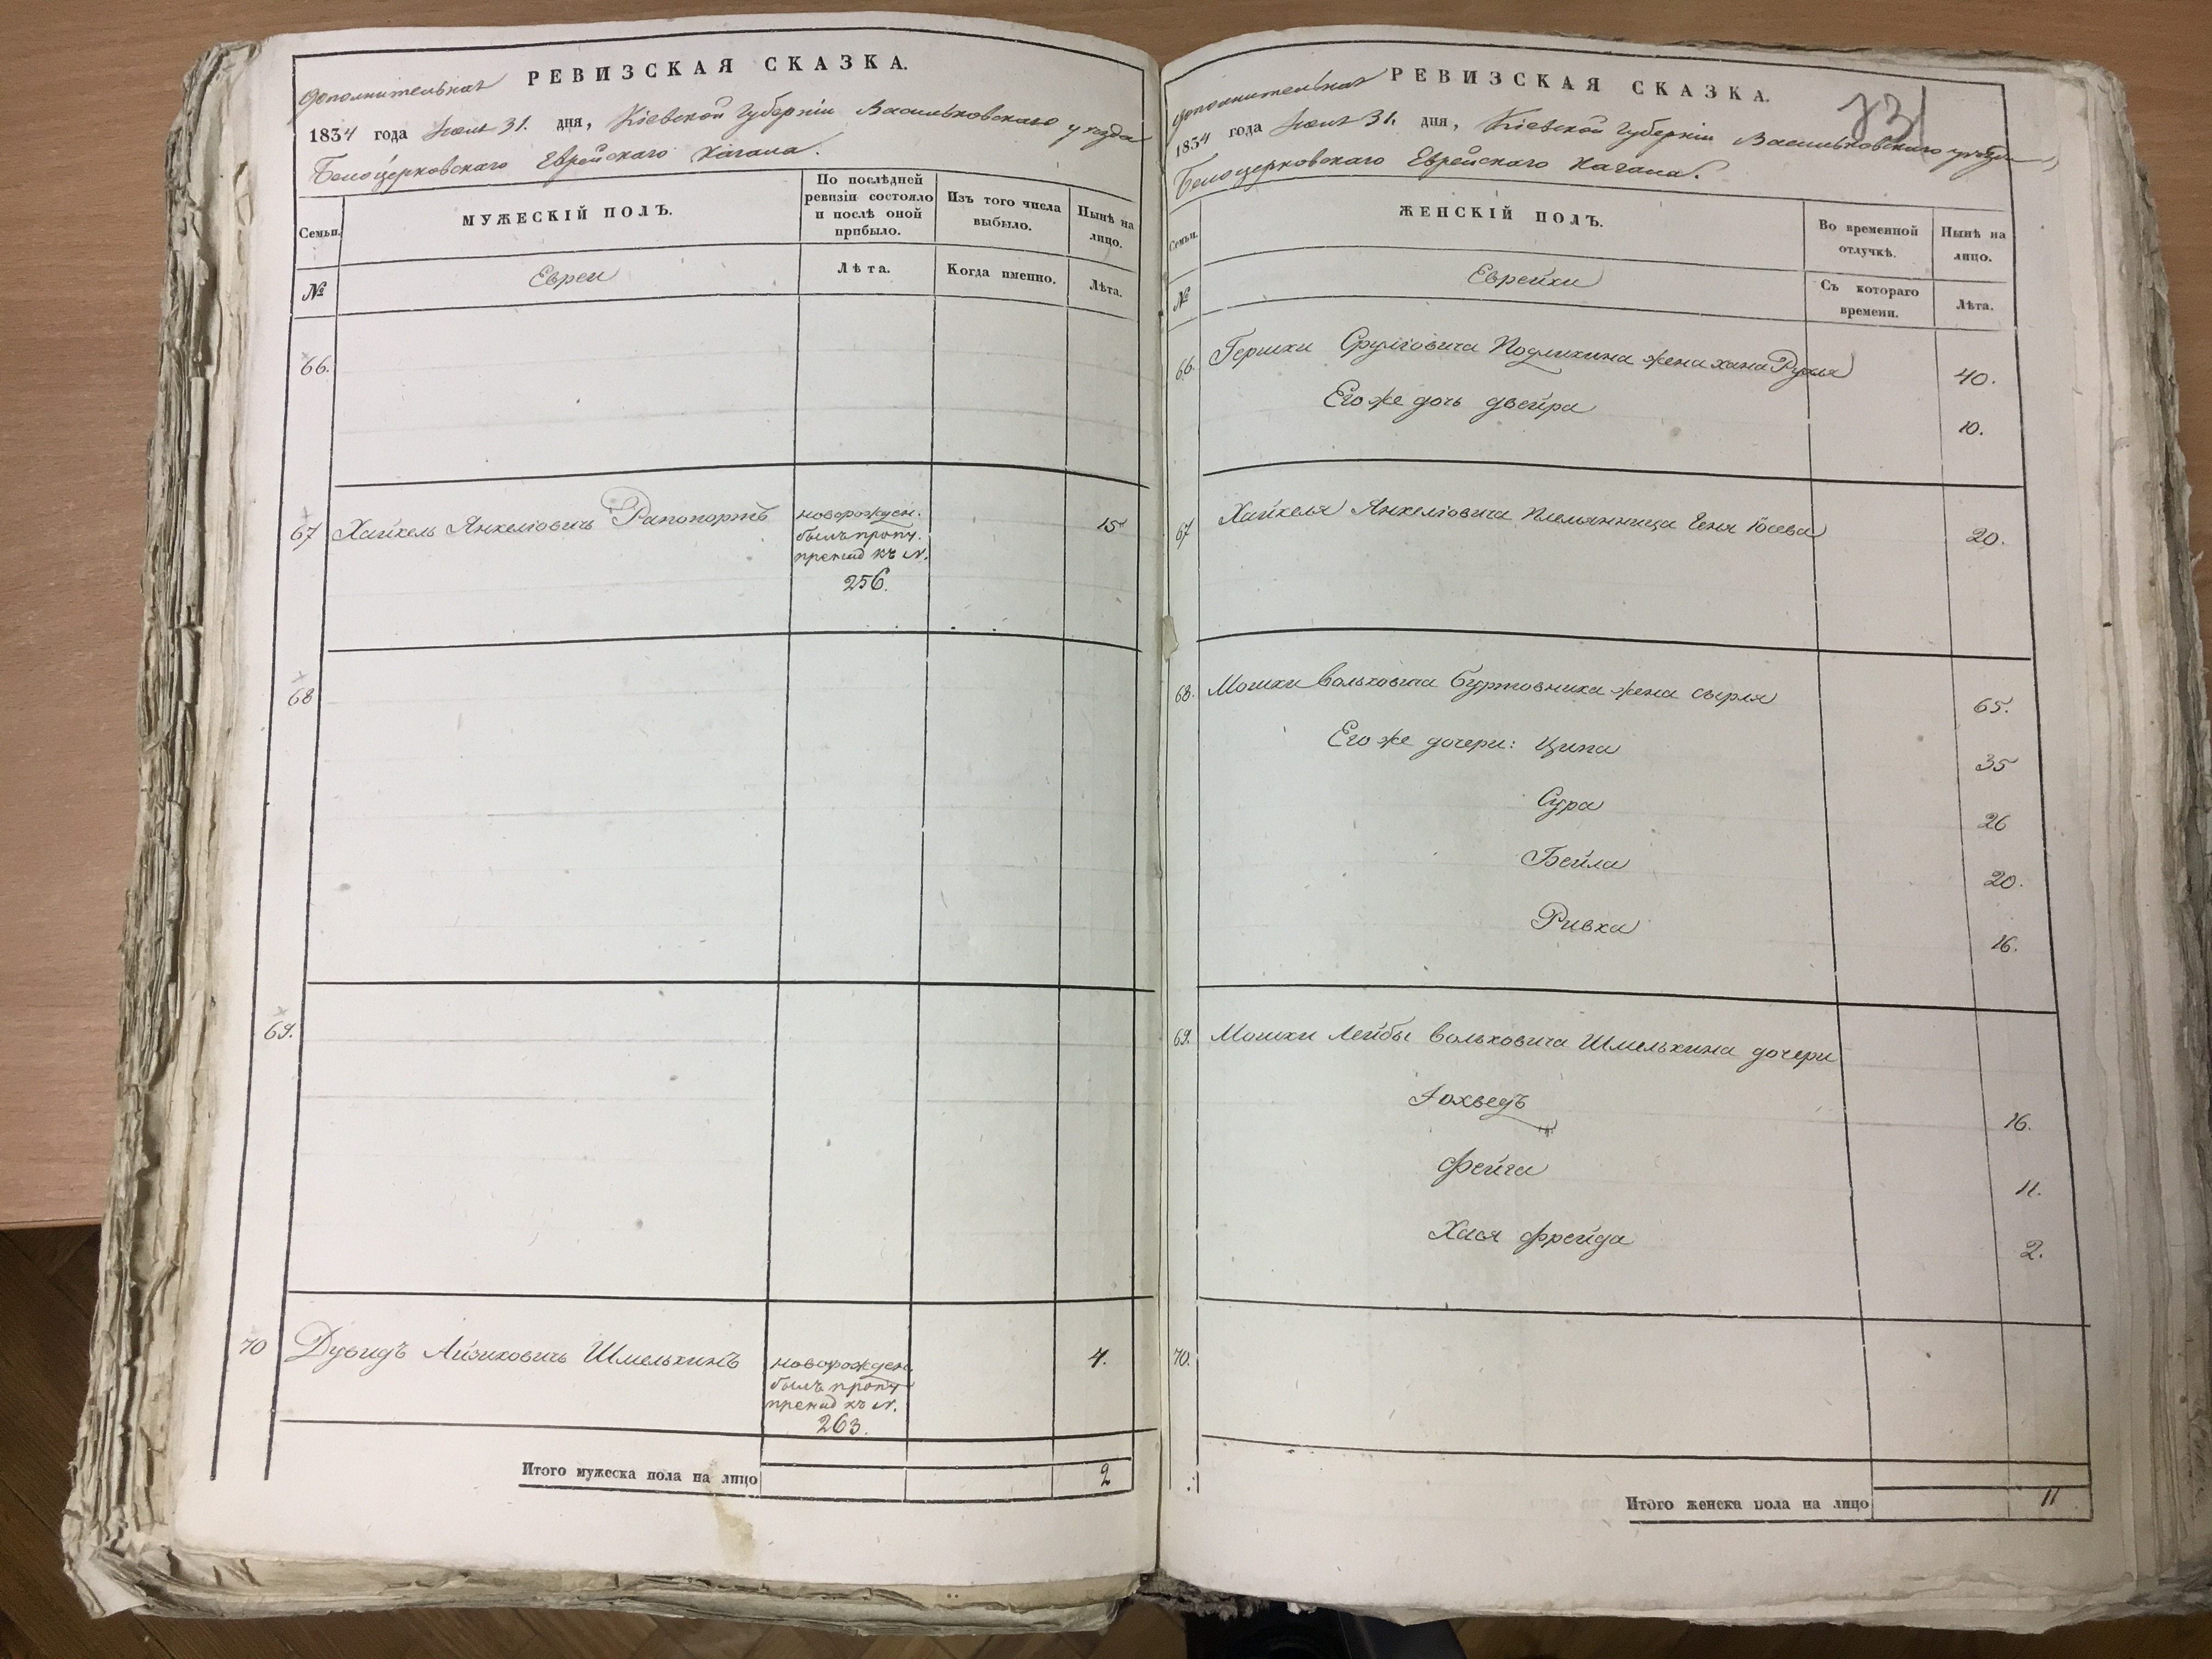 дополнительная РЕВИЗСКАЯ СКАЗКА.
1834 года Июля 31. дня, Кіевской Губерніи Васильковскаго уѣзда
Белоцерковскаго Еврейскаго Кагала.
Семьи.
МУЖЕСКІЙ ПОЛЪ.
По послѣдней ревизіи состояло и послѣ оной прибыло.
Изъ того числа выбыло.
Нынѣ на лицо.
№
Евреи
Лѣта.
Когда именно.
Лѣта.
66.
67 Хайкель Янкеліовичъ Рапопортъ новорожден. 15
былъ пропу.
прежид къ N.
256.
68
69.
70 Дувидъ Айзиковичъ Шмелькинъ новорожден. 4.
былъ пропу
прежид къ N.
263.
Итого мужеска пола на лицо 2
дополнительная РЕВИЗСКАЯ СКАЗКА. 731
1834 года Июля 31. дня, Кіевской Губерніи Васильковскаго уѣзда
Белоцерковскаго Еврейскаго Кагала.
Семьи.
ЖЕНСКІЙ ПОЛЪ.
Во временной отлучкѣ.
Нынѣ на лицо.
№
Еврейки
Съ котораго времени.
Лѣта.
66. Гершки Сруліовича Подлихина жена хана Рухля 40.
Его же дочь двейра 10.
67 Хайкеля Янкеліовича племянница Геня Іосева 20.
68. Мошки Вольковича Буртовника жена сырля 65.
Его же дочери: Ципа 35
Сура 26
Бейла 20.
Ривка 16.
69. Мошки Лейбы Вольковича Шмелькина дочери
Іохведъ 16.
Фейга 11.
Хася фрейда 2.
70.
Итого женска пола на лицо 11